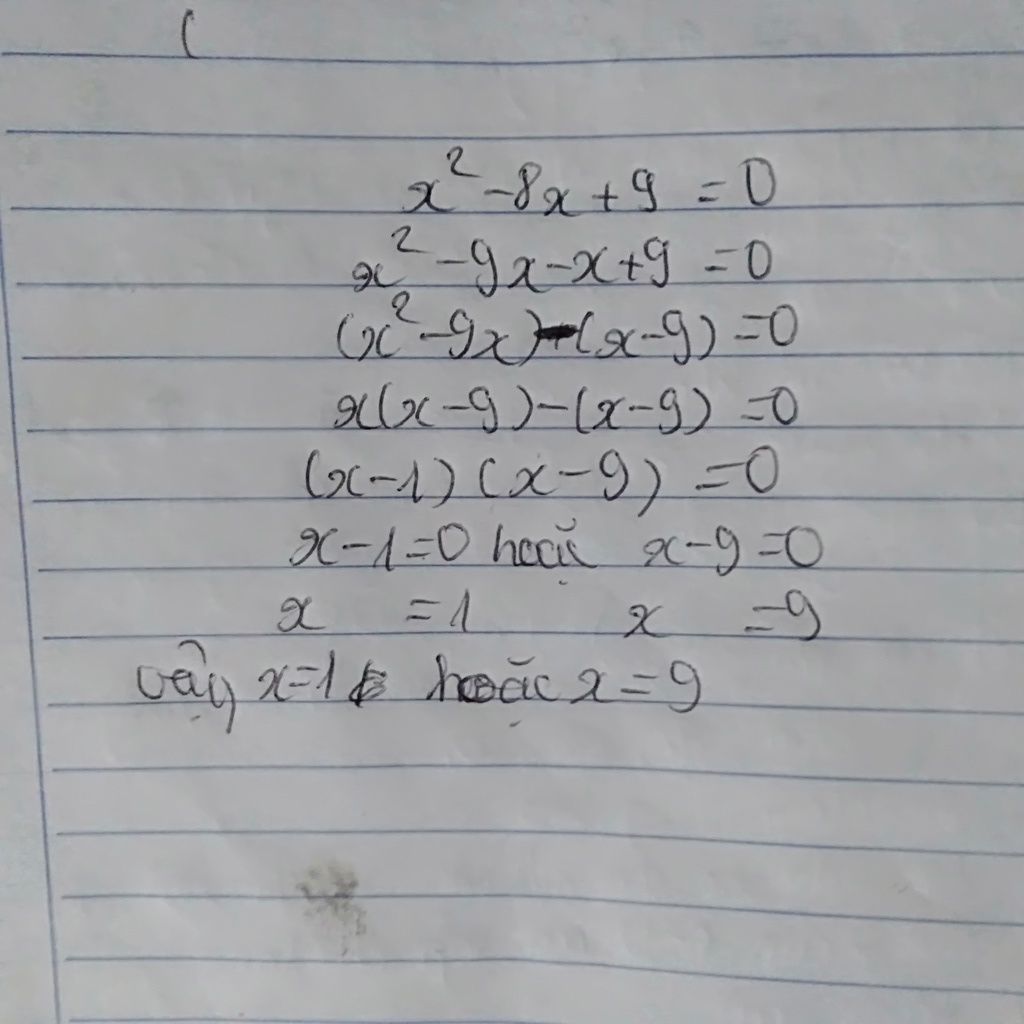 (
x² - 8x + 9 = 0
x² - 9x - x + 9 = 0
(x² - 9x) - (x - 9) = 0
x(x - 9) - (x - 9) = 0
(x - 1) (x - 9) = 0
x - 1 = 0 hoặc x - 9 = 0
x = 1 x = 9
vậy x = 1 hoặc x = 9